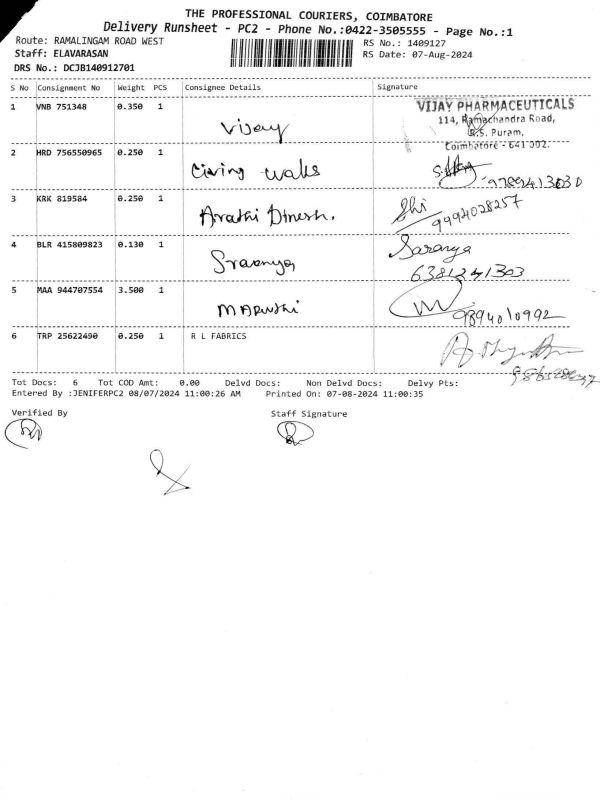 THE PROFESSIONAL COURIERS, COIMBATORE
Delivery Runsheet - PC2 - Phone No.:0422-3505555 - Page No.:1
Route: RAMALINGAM ROAD WEST RS No.: 1409127
Staff: ELAVARASAN RS Date: 07-Aug-2024
DRS No.: DCJB140912701
S No Consignment No Weight PCS Consignee Details Signature
1 VNB 751348 0.350 1 Vijay VIJAY PHARMACEUTICALS
114, Ramachandra Road,
R.S. Puram,
Coimbatore - 641 002.
2 HRD 756550965 0.250 1 Living walls 9789413030
3 KRK 819584 0.250 1 Arathi Dinesh. 9994028257
4 BLR 415809823 0.130 1 Sravanya Saranya
6381241303
5 MAA 944707554 3.500 1 MARUthi 9894010992
6 TRP 25622490 0.250 1 R L FABRICS
Tot Docs: 6 Tot COD Amt: 0.00 Delvd Docs: Non Delvd Docs: Delvy Pts:
Entered By :JENIFERPC2 08/07/2024 11:00:26 AM Printed On: 07-08-2024 11:00:35
Verified By Staff Signature